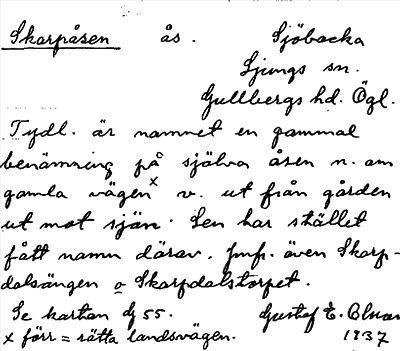 Skarpåsen ås. Sjöbacka
Ljungs sn.
Gullbergs hd. Ögl.
Tydl. är namnet en gammal
benämning på själva åsen n. om
gamla vägen x v. ut från gården
ut mot sjön. Sen har stället
fått namn därav. Jmf. även Skarp-
dalsängen o Skarpdalstorpet.
Se kartan Lj 55. Gustaf E.
x förr = rätta landsvägen. 1937